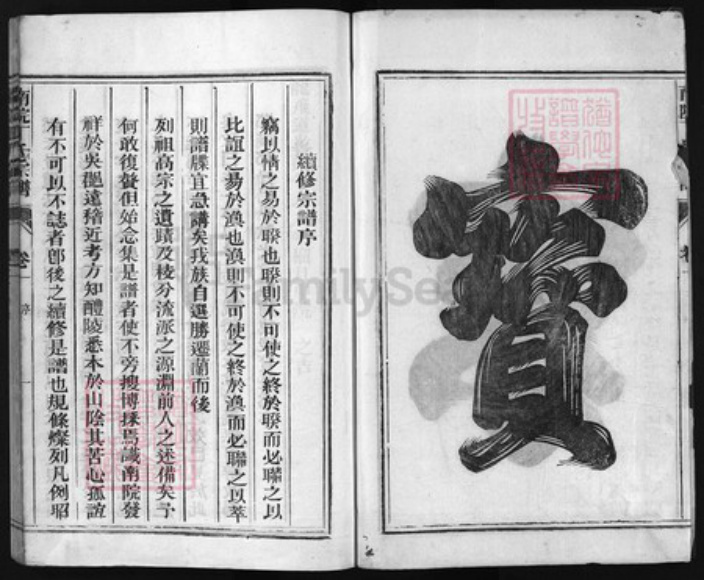 寳
續修宗譜序
竊以情之易於暌也暌則不可使之終於暌而必聯之以
比誼之易於渙也渙則不可使之終於渙而必聯之以萃
則譜牒宜急講矣我族自選勝遷蘭而後
列祖高宗之遺蹟及棱分流派之源淵前人之述備矣予
何敢復贅但始念集是譜者使不旁搜博採焉識南院發
祥於吳邑遠稽近考方知醴陵悉本於山陰其苦心孤誼
有不可以不誌者卽後之續修是譜也規條燦列凡例昭
卷一
序
一
FamilySe